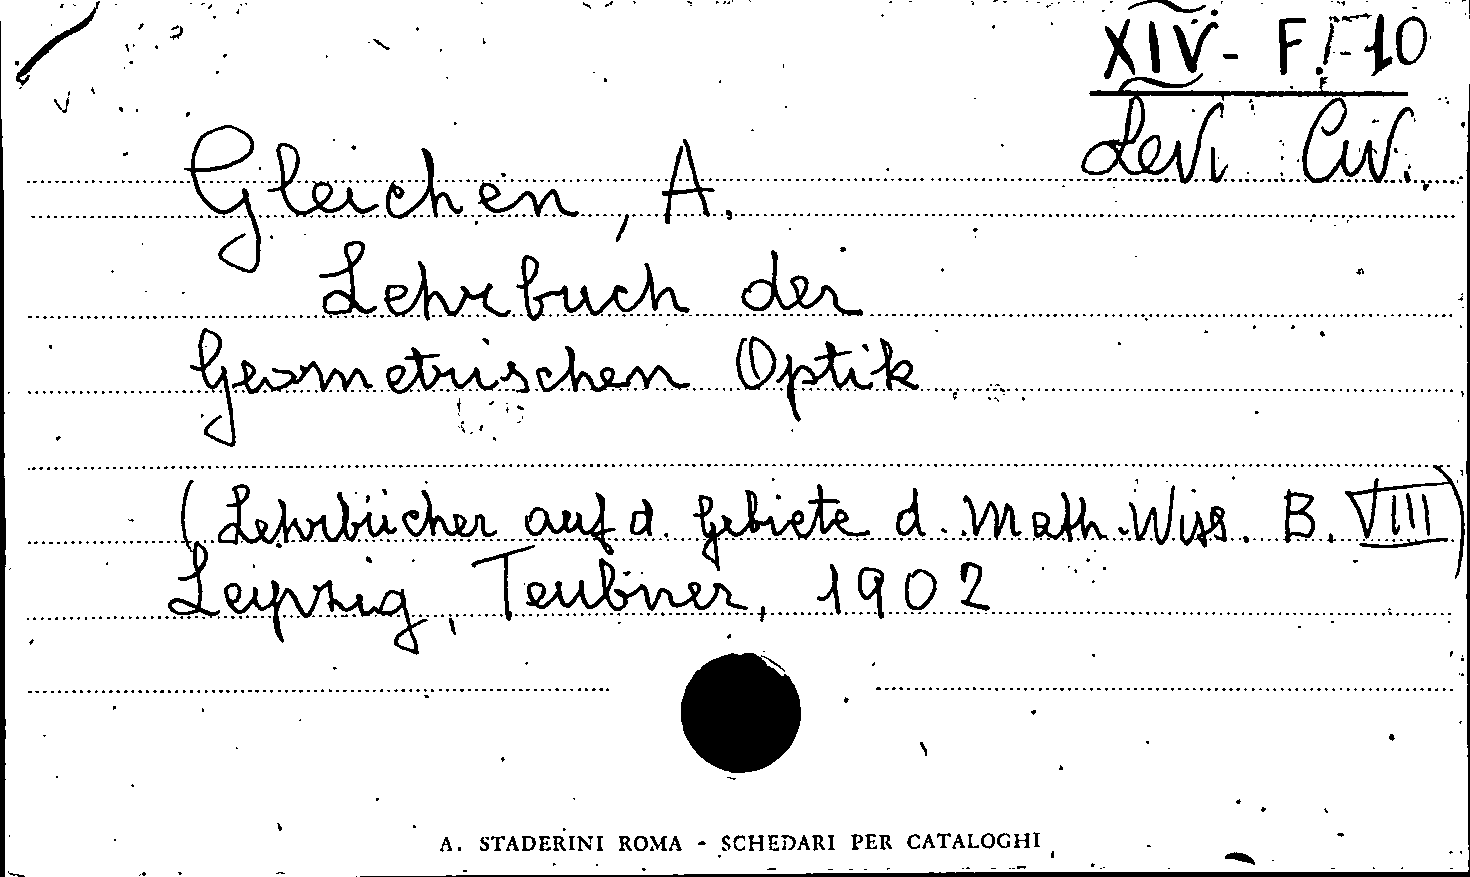 XIV - F. - 10
Levi Civ.
Gleichen, A.
Lehrbuch der
Geometrischen Optik
(Lehrbücher auf d. Gebiete d. Math. Wiss. B. VIII)
Leipzig, Teubner, 1902
A. STADERINI ROMA - SCHEDARI PER CATALOGHI